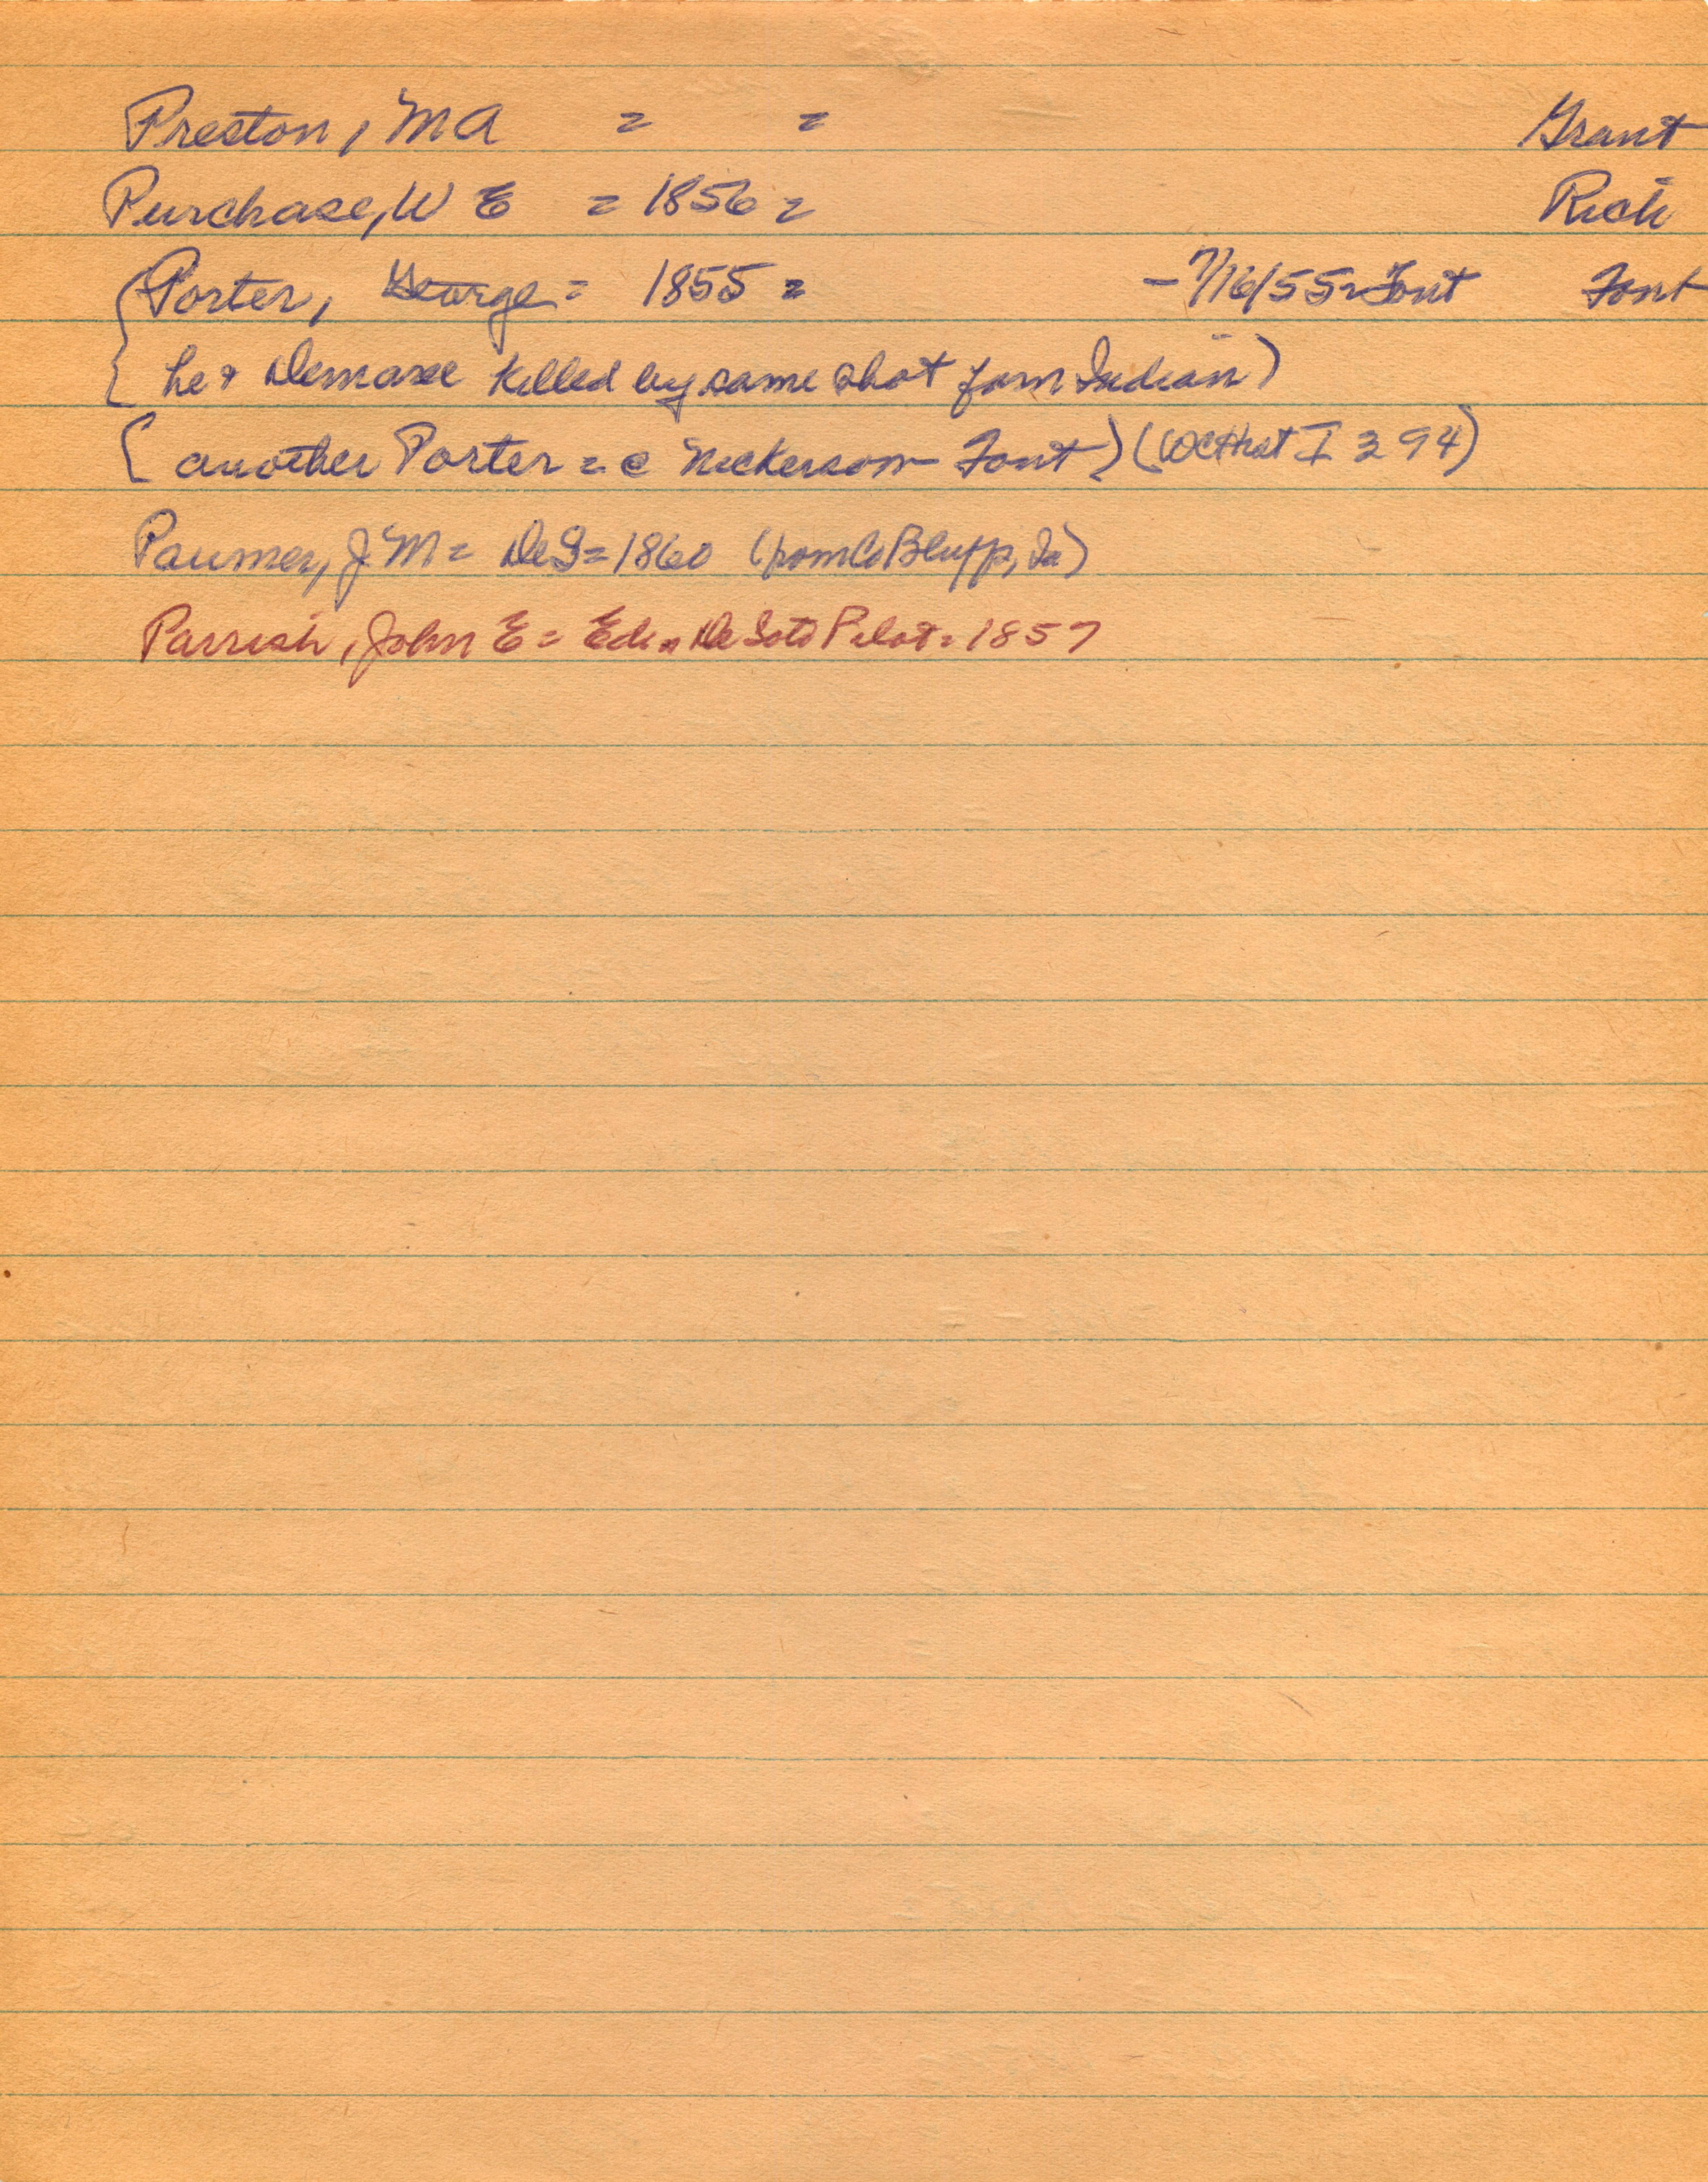 Preston, MA = = Grant
Purchase, W E = 1856 = Rich
{Porter, George = 1855 = - 7/16/55 = Font Font
{ he & Demaree killed by same shot form Indian)
{ another Porter = c Nickerson - Font) (WCHist I 394)
Paumer, J. M = DeS = 1860 (from Co Bluffs, Ia)
Parrish, John E = Ed = De Soto Pilot = 1857